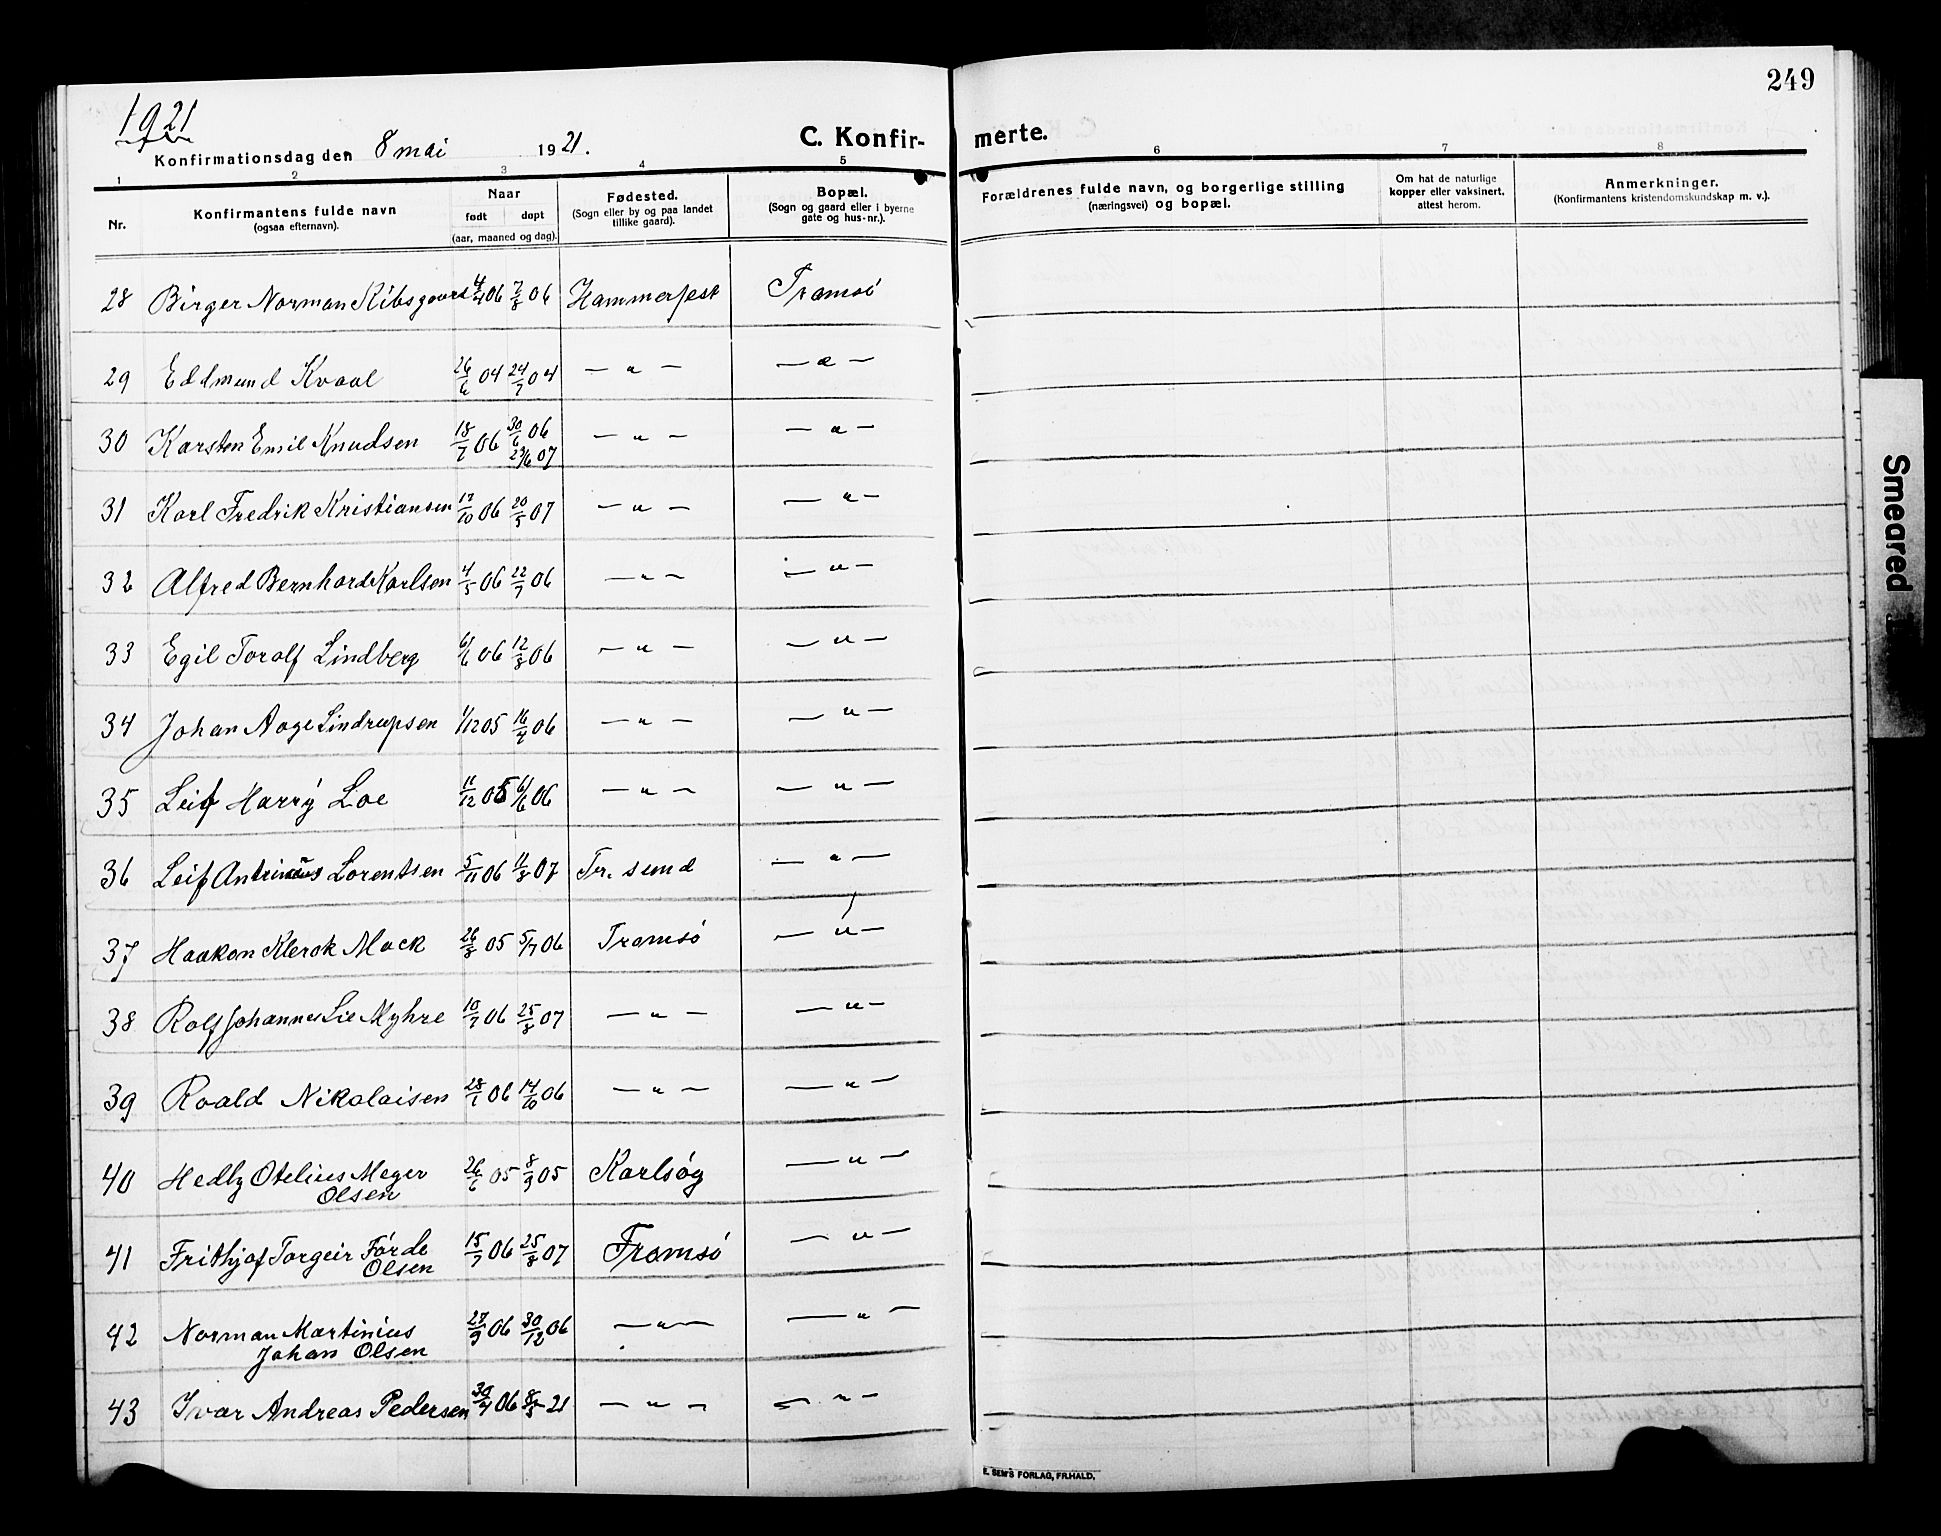 249
1921
Konfirmationsdag den 8 mai 1921.
C. Konfirmerte.
1 2 3 4 5 6 7 8
Nr.
Konfirmantens fulde navn
(ogsaa efternavn).
Naar
født døpt
(aar, maaned og dag).
Fødested.
(Sogn eller by og paa landet
tillike gaard).
Bopæl.
(Sogn og gaard eller i byerne
gate og hus-nr.).
Forældrenes fulde navn, og borgerlige stilling
(næringsvei) og bopæl.
Om hat de naturlige
kopper eller vaksinert,
attest herom.
Anmerkninger.
(Konfirmantens kristendomskundskap m. v.).
28 Birger Norman Kibsgaard 4/4 06 7/8 06 Hammerfest Tromsö
29 Eddmund Kvaal 26/6 04 24/7 04 — " — — " —
30 Karsten Emil Knudsen 18/7 06 30/6 06 — " — — " —
23/6 07
31 Karl Fredrik Kristiansen 17/10 06 20/5 07 — " — — " —
32 Alfred Bernhard Karlsen 4/5 06 22/7 06 — " — — " —
33 Egil Toralf Lindberg 6/6 06 12/8 06 — " — — " —
34 Johan Aage Lindrupsen 1/12 05 16/4 06 — " — — " —
35 Leif Harry Loe 11/12 05 6/6 06 — " — — " —
36 Leif Lorentsen 5/11 06 11/8 07 Tr. sund — " —
37 Haakon Klerck Mack 26/8 05 5/7 06 Tromsö — " —
38 Rolf Johannes Lie Myhre 10/7 06 25/8 07 — " — — " —
39 Roald Nikolaisen 28/1 06 14/10 06 — " — — " —
40 Hedly Otelius Meyer 26/6 05 8/9 05 Karlsøy — " —
Olsen
41 Frithjof Torgeir Förde 15/7 06 25/8 07 Tromsö — " —
Olsen
42 Norman Martinius 27/9 06 30/12 06 — " — — " —
Johan Olsen
43 Ivar Andreas Pedersen 30/4 06 8/5 21 — " — — " —
E. SEM'S FORLAG, FR.HALD.
Smeared